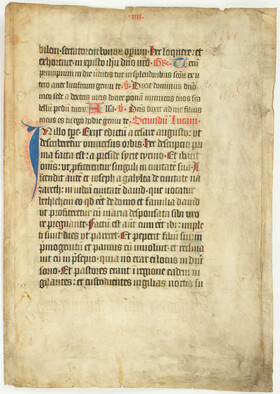 iiii
bilem sectatorem bonorum operum. Hec loquere: et
exhortare in christo ihesu domino nostro. Gr. Tecum
principium in die virtutis tue in splendoribus sanctorum ex u
tero ante luciferum genui te. V. Dixit dominus domino
meo sede a dextris meis donec ponam inimicos tuos sca
bellum pedum tuorum. Alla. V. Dominus dixit ad me filius
meus es tu ego hodie genui te. Secundum Lucam.
In illo tempore. Exijt edictum a cesare augusto: ut
describeretur universus orbis. Hec descriptio pri
ma facta est: a preside syrie cyrino. Et ibant
omnes: ut profiterentur singuli in civitatem suam. A
scendit autem et ioseph a galylea de civitate na
zareth: in iudeam civitatem david. que vocatur
bethleem eo quod esset de domo et familia david
ut profiteretur cum maria desponsata sibi uxo
re pregnante. Factum est autem cum essent ibi: implet
sunt dies ut pareret. Et peperit filium suum pri
mogenitum et pannis eum involvit: et reclina
vit eum in presepio. quia non erat ei locus in diver
sorio. Et pastores erant in regione eadem vi
gilantes: et custodientes vigilias noctis su